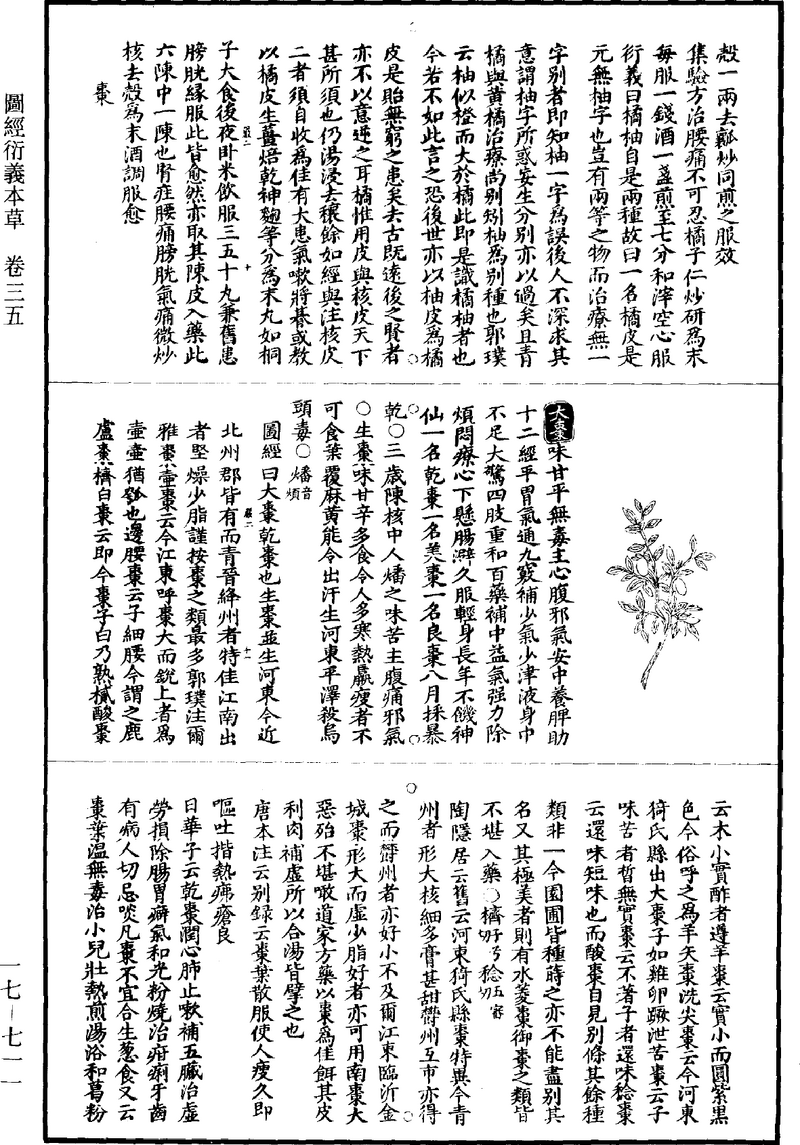 圖經衍義本草　卷三五
殼一兩去瓤炒同煎之服效
集驗方治腰痛不可忍橘子仁炒研爲末
每服一錢酒一盞煎至七分和滓空心服
衍義曰橘柚自是兩種故曰一名橘皮是
元無柚字也豈有兩等之物而治療無一
字別者即知柚一字爲誤後人不深求其
意謂柚字所惑妄生分別亦以過矣且青
橘與黃橘治療尚別矧柚爲別種也郭璞
云柚似橙而大於橘此即是識橘柚者也
今若不如此言之恐後世亦以柚皮爲橘
皮是貽無窮之患矣去古既遠後之賢者
亦不以意逆之耳橘惟用皮與核皮天下
甚所須也仍湯浸去穰餘如經與注核皮
二者須自收爲佳有大患氣嗽將朞或教
以橘皮生薑焙乾神麴等分爲末丸如桐
子大食後夜卧米飲服三五十丸兼舊患
膀胱緣服此皆愈然亦取其陳皮入藥此
六陳中一陳也腎疰腰痛膀胱氣痛微炒
核去殼爲末酒調服愈
棗
大棗味甘平無毒主心腹邪氣安中養脾助
十二經平胃氣通九竅補少氣少津液身中
不足大驚四肢重和百藥補中益氣强力除
煩悶療心下懸腸澼久服輕身長年不饑神
仙一名乾棗一名美棗一名良棗八月採暴
乾○三歲陳核中人燔之味苦主腹痛邪氣
○生棗味甘辛多食令人多寒熱羸瘦者不
可食葉覆麻黃能令出汗生河東平澤殺烏
頭毒○燔音煩
圖經曰大棗乾棗也生棗並生河東今近
北州郡皆有而青晉絳州者特佳江南出
者堅燥少脂謹按棗之類最多郭璞注爾
雅棗壺棗云今江東呼棗大而銳上者爲
壺壺猶瓠也邊腰棗云子細腰今謂之鹿
盧棗櫅白棗云即今棗子白乃熟樲酸棗
云木小實酢者遵羊棗云實小而圓紫黑
色今俗呼之爲羊矢棗洗尖棗云今河東
猗氏縣出大棗子如雞卵蹶泄苦棗云子
味苦者晳無實棗云不著子者還味棯棗
云還味短味也而酸棗自見別條其餘種
類非一今園圃皆種蒔之亦不能盡別其
名又其極美者則有水菱棗御棗之類皆
不堪入藥○櫅 切 棯 切
陶隱居云舊云河東猗氏縣棗特異今青
州者形大核細多膏甚甜鬱州互市亦得
之而鬱州者亦好小不及爾江東臨沂金
城棗形大而虛少脂好者亦可用南棗大
惡殆不堪噉道家方藥以棗爲佳餌其皮
利肉補虛所以合湯皆擘之也
唐本注云別錄云棗葉散服使人瘦久即
嘔吐揩熱疿瘡良
日華子云乾棗潤心肺止嗽補五臟治虛
勞損除腸胃癖氣和光粉燒治疳痢牙齒
有病人切忌啖凡棗不宜合生葱食又云
棗葉温無毒治小兒壯熱煎湯浴和葛粉
一七—七一一